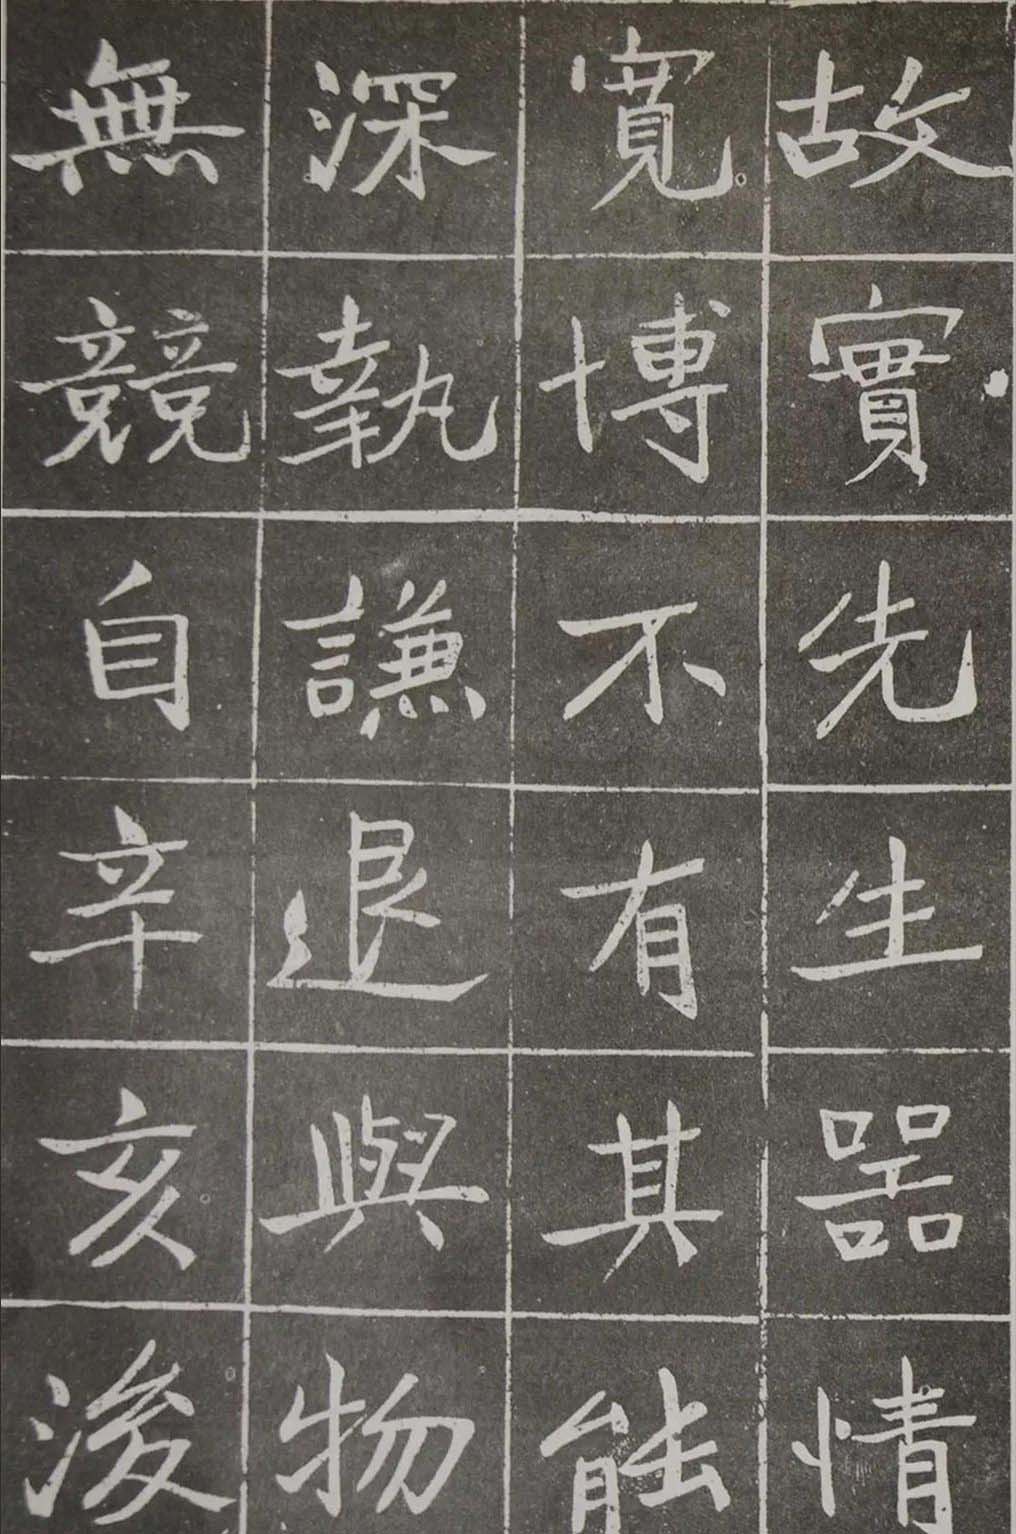 故實先生器情
寬博不有其能
深執謙退與物
無競自辛亥後